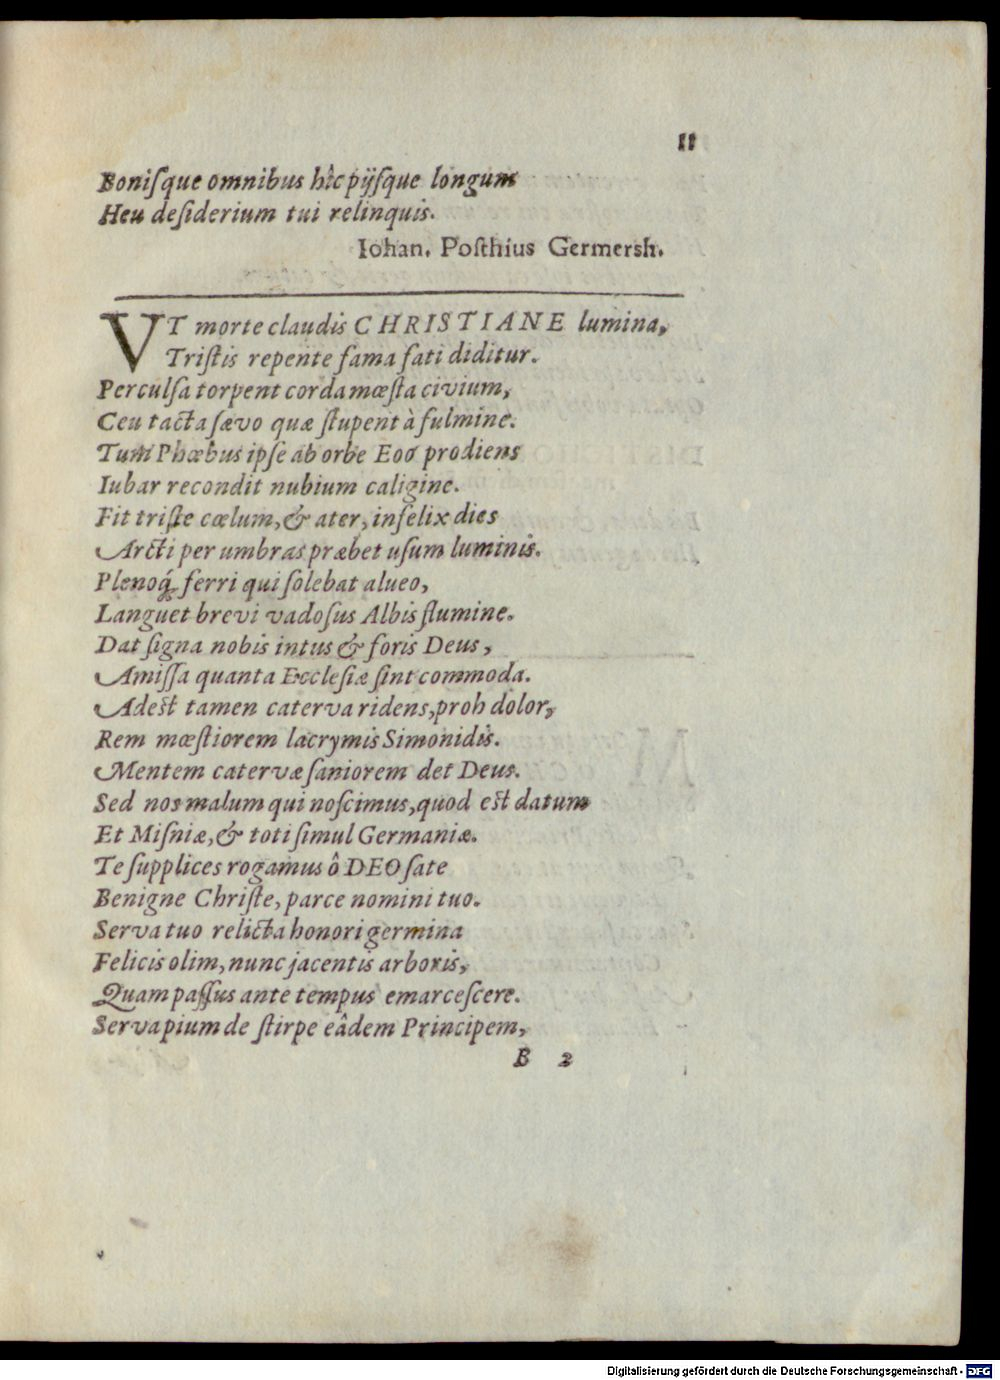 11
Boniſque omnibus hîc pijſque longum
Heu deſiderium tui relinquis.
Iohan. Poſthius Germersh.
VT morte claudis CHRISTIANE lumina,
Triſtis repente fama fati diditur.
Perculſa torpent corda mœſta civium,
Ceu tacta ſævo quæ ſtupent à fulmine.
Tum Phœbus ipſe ab orbe Eoo prodiens
Iubar recondit nubium caligine.
Fit triſte cœlum, & ater, infelix dies
Arcti per umbras præbet uſum luminis.
Plenoq́; ferri qui ſolebat alueo,
Languet brevi vadoſus Albis flumine.
Dat ſigna nobis intus & foris Deus,
Amiſſa quanta Eccleſiæ ſint commoda.
Adest tamen caterva ridens, proh dolor,
Rem mœſtiorem lacrymis Simonidis.
Mentem catervæ ſaniorem det Deus.
Sed nos malum qui noſcimus, quod est datum
Et Miſniæ, & toti ſimul Germaniæ.
Te ſupplices rogamus ô DEO ſate
Benigne Chriſte, parce nomini tuo.
Serva tuo relicta honori germina
Felicis olim, nunc jacentis arboris,
Quam paſſus ante tempus emarceſcere.
Serva pium de ſtirpe eâdem Principem,
B 2
Digitalisierung gefördert durch die Deutsche Forschungsgemeinschaft - DFG